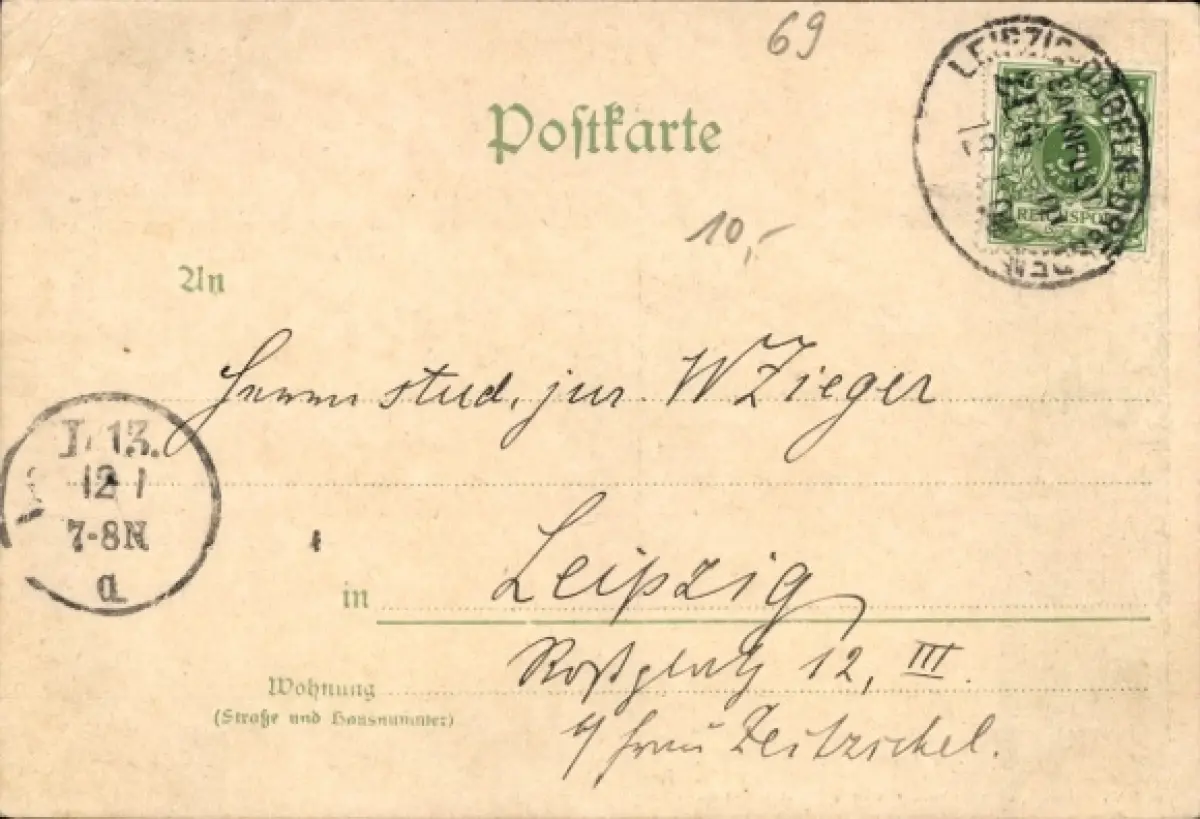 69
Postkarte
LEIPZIG-DÖBELN-DRESDEN
BAHNPOST
5
REICHSPOST
10,-
An
Herrn stud. jur. W Zieger
L 13.
12 1
7-8N
a
in Leipzig
Roßplatz 12, III.
Wohnung
(Straße und Hausnummer)
b/ Frau Zeitzschel.